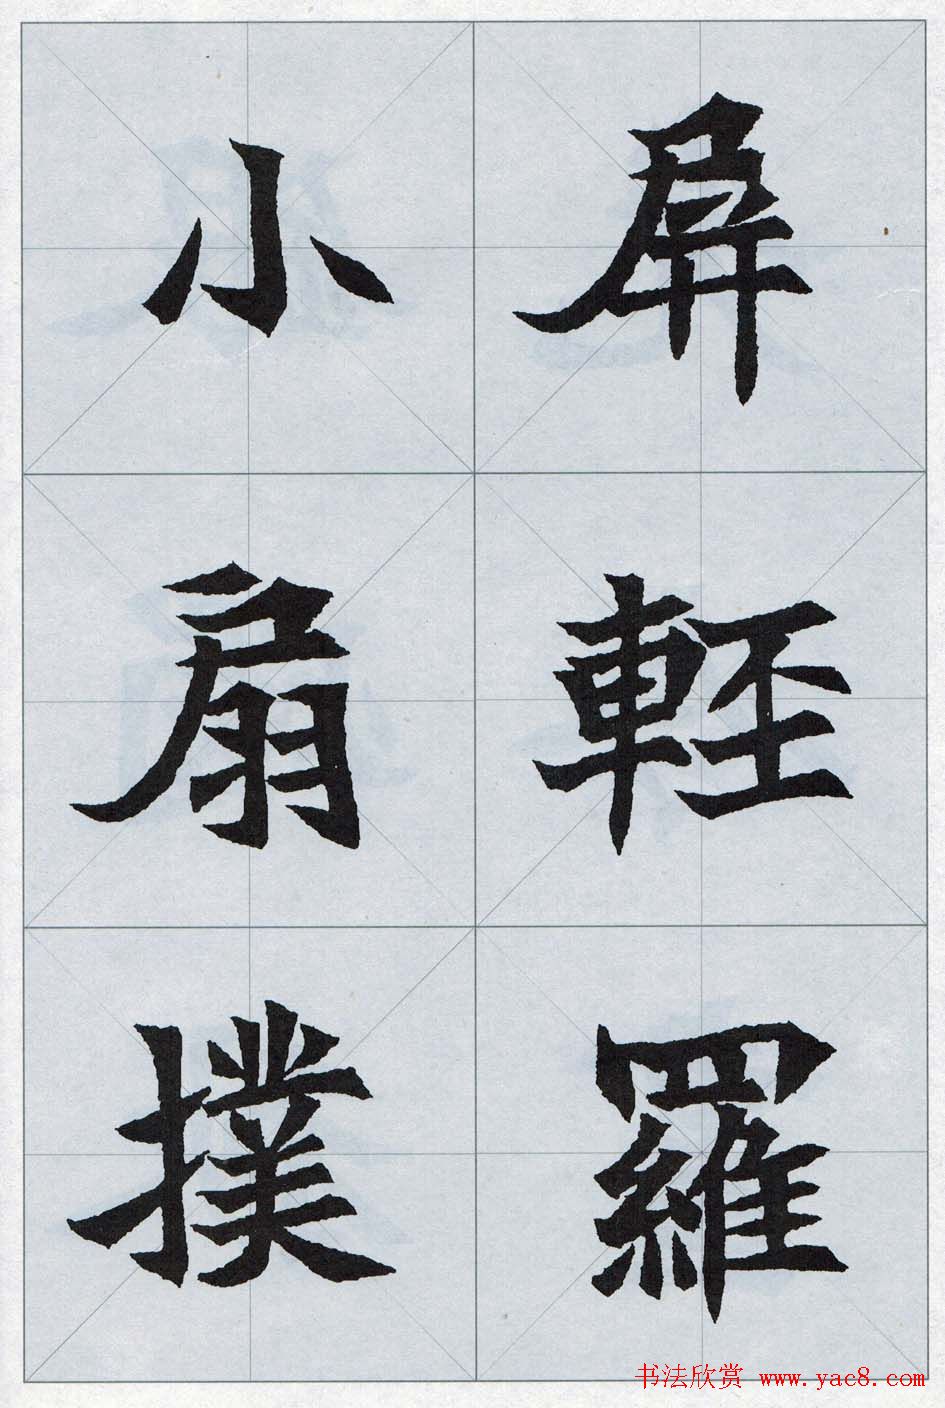 屏輕羅
小扇撲
书法欣赏 www.yac8.com